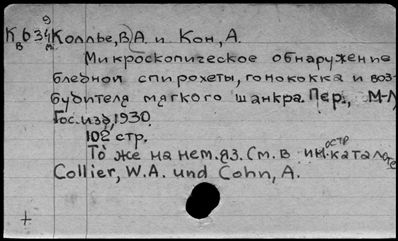 9
К 634 Колльер, В.А. и Кон, А.
В м
Микроскопическое обнаружение
бледной спирохеты, гонококка и воз-
будителя мягкого шанкра. Пер., М-Л
Гос. изд, 1930.
102 стр.
То же на нем. яз. См. в иностр. каталоге
Collier, W.A. und Cohn, A.